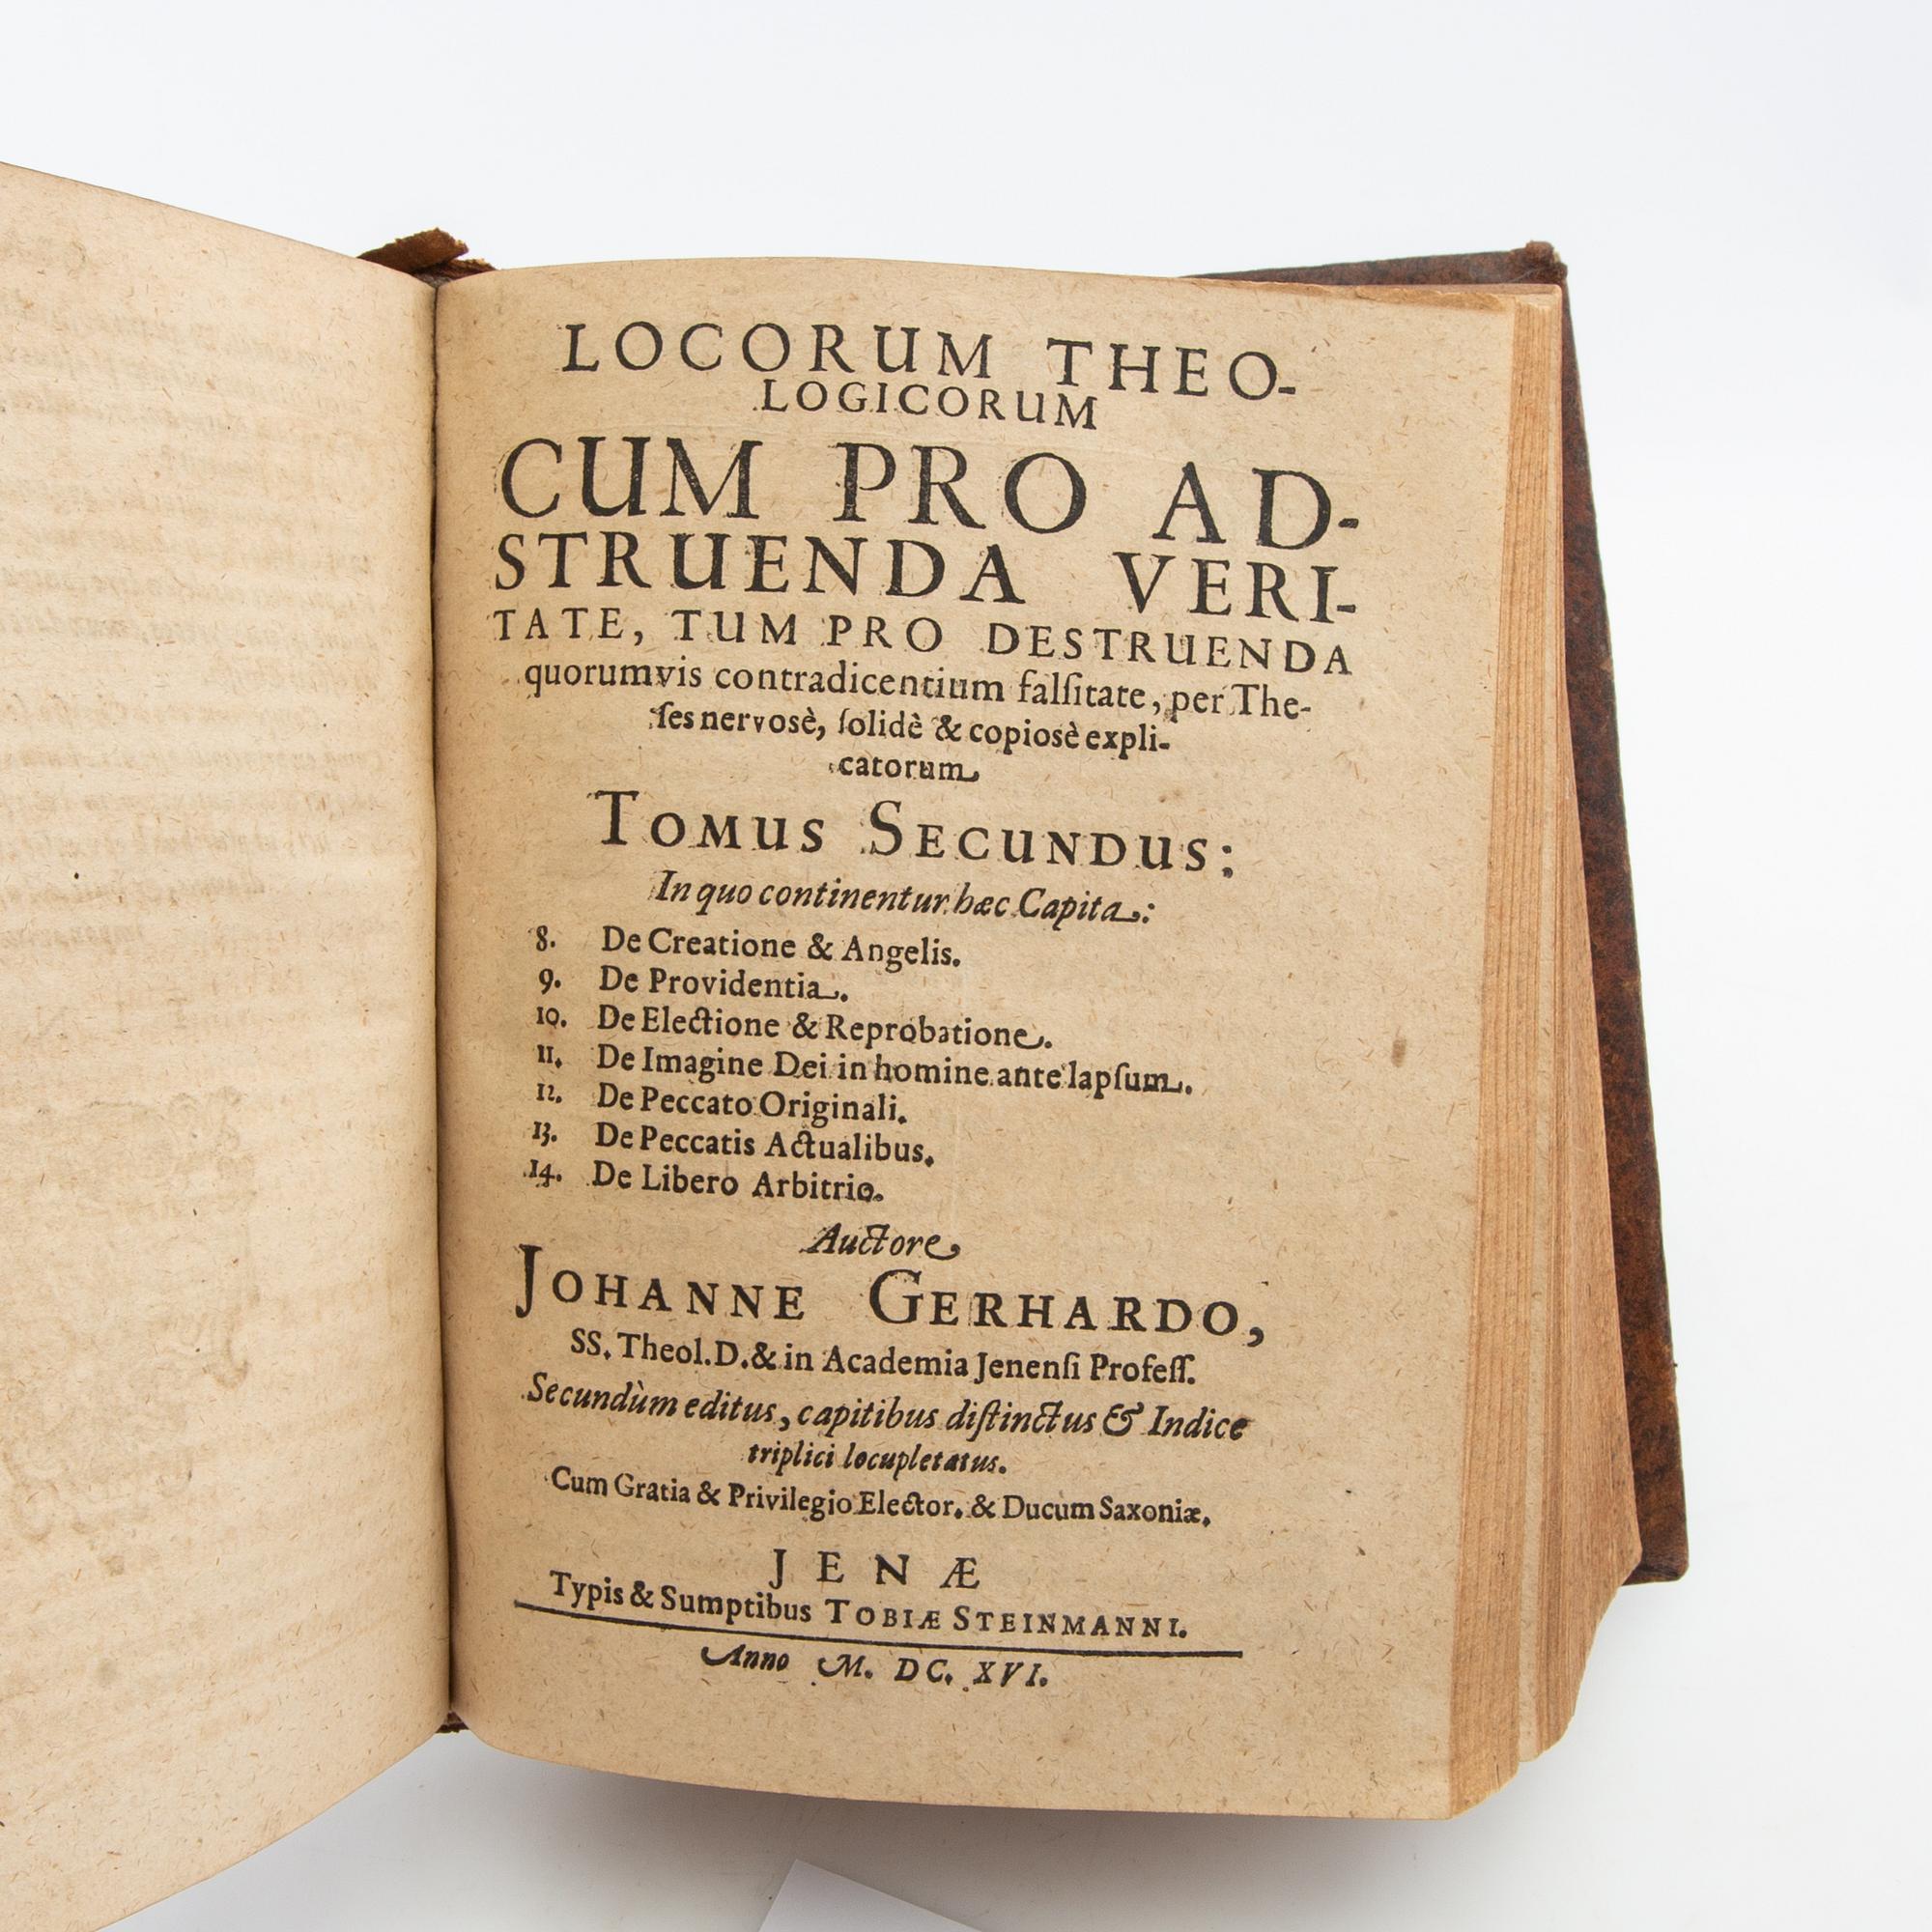 LOCORUM THEO-
LOGICORUM
CUM PRO AD-
STRUENDA VERI-
TATE, TUM PRO DESTRUENDA
quorumvis contradicentium falſitate, per The-
ſes nervosè, ſolidè & copiosè expli-
catorum
TOMUS SECUNDUS:
In quo continentur hæc Capita:
8. De Creatione & Angelis.
9. De Providentia.
10. De Electione & Reprobatione.
11. De Imagine Dei in homine ante lapſum.
12. De Peccato Originali.
13. De Peccatis Actualibus.
14. De Libero Arbitrio.
Auctore
JOHANNE GERHARDO,
SS. Theol. D. & in Academia Jenenſi Profeſſ.
Secundùm editus, capitibus diſtinctus & Indice
triplici locupletatus.
Cum Gratia & Privilegio Elector. & Ducum Saxoniæ.
JENÆ
Typis & Sumptibus TOBIÆ STEINMANNI.
Anno M. DC. XVI.